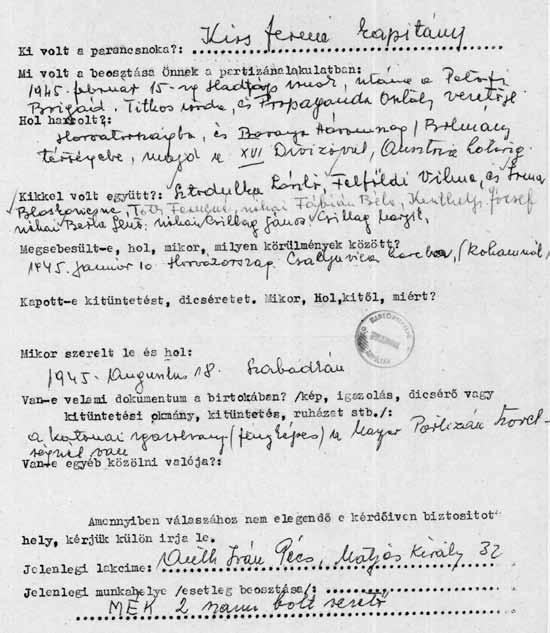 Ki volt a parancsnoka?: Kiss Ferenc kapitány
Mi volt a beosztása Önnek a partizánalakulatban:
1945 február 15-ig Hadtáp, utána a Petőfi
Brigád. Titkos iroda, és Propaganda Osztály vezetője
Hol harcolt?:
Horvátországba, és Baranya Háromszög / Bolmány
térségébe, majd a XVI Divízióval, Ausztria határig.
Kikkel volt együtt?: László, Felföldi Vilma, és Irma
Tóth Ferenc, néhai Fábián Béla, József
néhai Berta Jenő. néhai Csillag János, Csillag Margit,
Megsebesült-e, hol, mikor, milyen körülmények között?
1945. január 10. Horvátország harcba,
Kapott-e kitüntetést, dicséretet. Mikor, Hol,kitől, miért?
Mikor szerelt le és hol:
1945. Augusztus 18. Szabadkán
Van-e valami dokumentum a birtokában? /kép, igazolás, dicsérő vagy
kitüntetési okmány, kitüntetés, ruházat stb./:
a katonai igazolvány (fényképes) a Magyar Partizán Szövet-
ségnél van
Van-e egyéb közölni valója?:
Amennyiben válaszához nem elegendő e kérdőiven biztositott
hely, kérjük külön irja le.
Jelenlegi lakcime: Iván Pécs, Mátyás Király 32
Jelenlegi munkahelye /esetleg beosztása/:
MÉK 2 számú bolt vezető